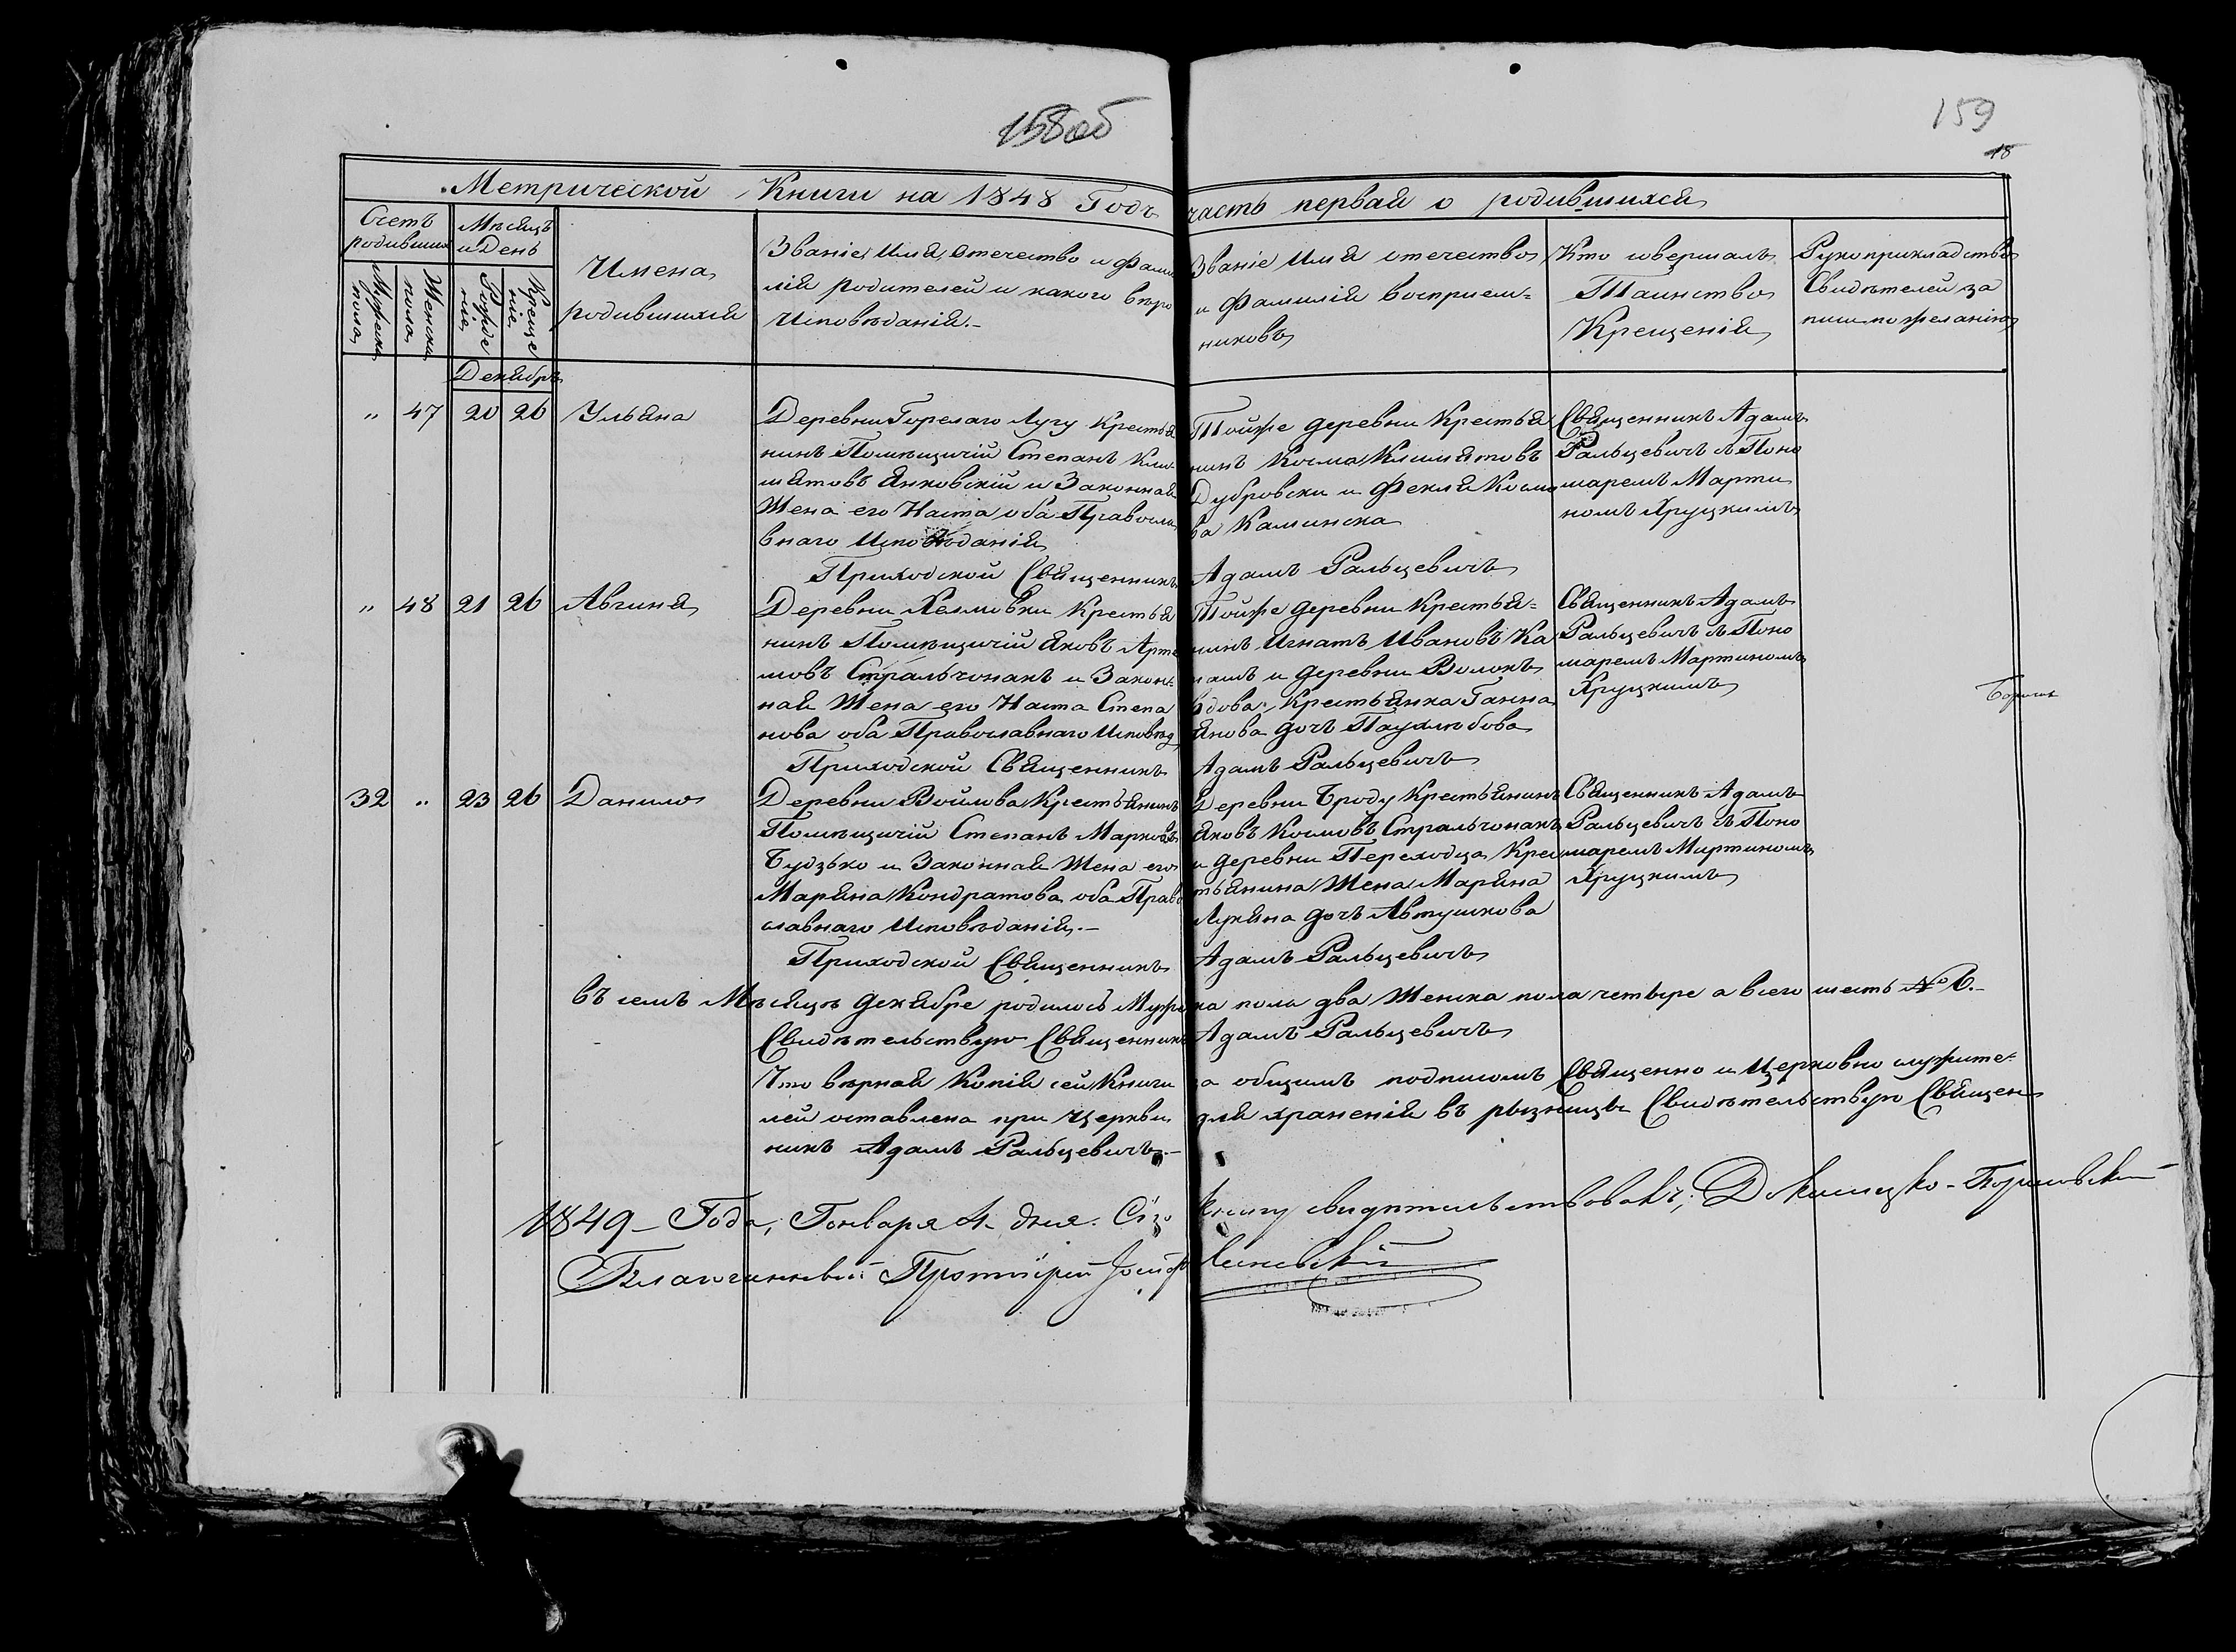 158 об
159
18
Метрической Книги на 1848 Годъ часть первая о родившихся
Счетъ родивших
Мѣсяцъ и День
Мужеска пола
Женска пола
Рожде ніе
Креще ніе
Имена родившихся
Званіе, Имя, Отечество и Фами
лія родителей и какого вѣро
Исповѣданія.-
Званіе Имя отечество
и Фамилія воспріем=
никовъ
Кто совершалъ
Таинство
Крещенія
Рукоприкладство
Свидѣтелей за
писи по желанію
Декабрь
" 47 20 26 Ульяна
Деревни Горелаго Лугу Крестья
нинъ Помѣщичій Степанъ Кли
мятовъ Янковскій и Законная
Жена его Наста оба Правосла
внаго Исповѣданія
Тойже деревни Крестья
нинъ Косма Климятовъ
Дубровски и Фекла Космо
ва Калинска
Священникъ Адамъ
Ральцевичъ съ Поно
маремъ Марти
номъ Хруцкимъ
Приходской Священникъ Адамъ Ральцевичъ
" 48 21 26 Авгиня
Деревни Холмовки Крестья
нинъ Помѣщичій Яковъ Арте
мовъ Стральчонакъ и Закон=
ная Жена его Наста Степа
нова оба Православнаго Исповѣд
Тойже деревни Крестья=
нинъ Игнатъ Ивановъ Ка
и деревни Волокъ
вдова, Крестьянка Ганна
Янова дочь
Священникъ Адамъ
Ральцевичъ съ Поно
маремъ Мартиномъ
Хруцкимъ
Приходской Священникъ Адамъ Ральцевичъ
32 " 23 26 Данило
Деревни Войлова Крестьянинъ
Помѣщичій Степанъ Марковъ
Будзько и Законная Жена его
Марьяна Кондратова оба Право
славнаго Исповѣданія.-
Деревни Броду Крестьянинъ
Яковъ Космовъ Стральчонакъ
и деревни Переходца Крес
тьянина Жена Марьяна
Лукяна дочь Автушкова
Священникъ Адамъ
Ральцевичъ съ Поно
маремъ Мартиномъ
Хруцкимъ
Приходской Священникъ Адамъ Ральцевичъ
въ семъ Мѣсяцѣ декабре родилось Мужеска пола два Женска пола четыре а всего шесть № 6.-
Свидѣтельствую Священникъ Адамъ Ральцевичъ
Что вѣрная Копія сей Книги за общимъ подписомъ Священно и Церковно служите=
лей оставлена при Церкви для храненія въ рызницы Свидѣтельствую Священ
никъ Адамъ Ральцевичъ.-
1849 - Года, Генваря 4 дня. Сію книгу свидѣтельствовалъ, Докшицко-Борисовскій
Благочинный Протоіерей Іосифъ